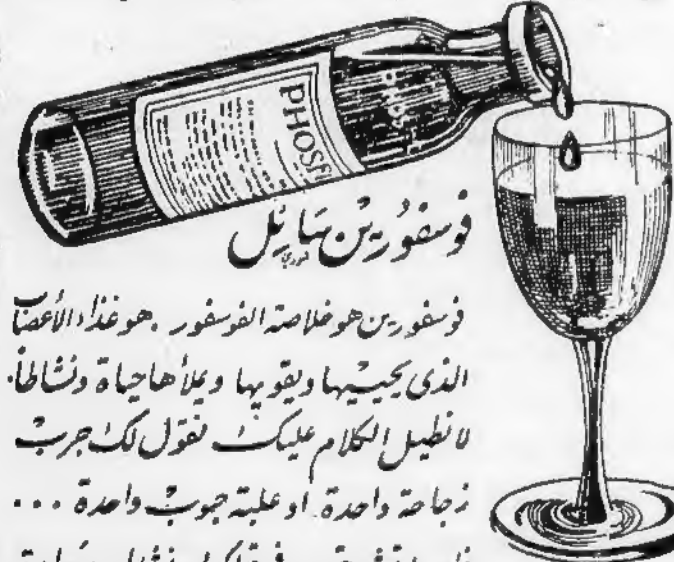 PHOSF
فوسفورين سائل
فوسفورين هو خلاصة الفوسفور. هو غذاء الأعصاب
الذى يحييها ويقويها ويملأها حياة ونشاطاً.
لا نطيل الكلام عليك نقول لك جرب
زجاجة واحدة او علبة حبوب واحدة ...